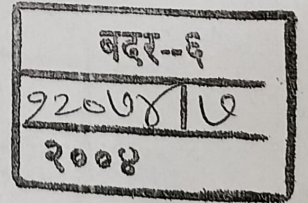 बदर--६
१२०७४/७
२००४